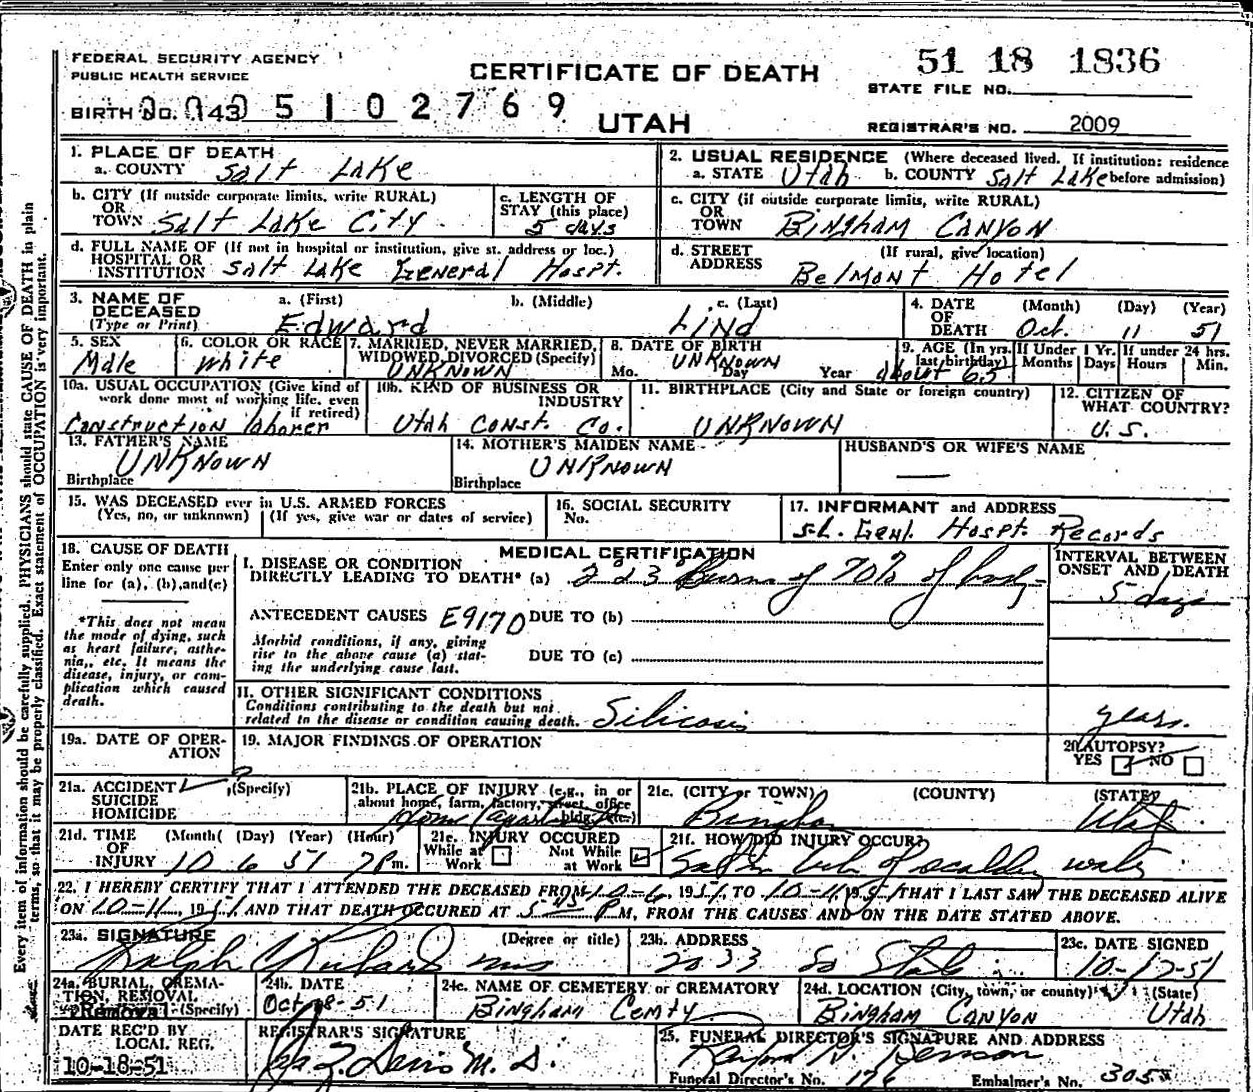 FEDERAL SECURITY AGENCY
PUBLIC HEALTH SERVICE
CERTIFICATE OF DEATH
UTAH
51 18 1836
STATE FILE NO.
BIRTH NO. 143 5102769
REGISTRAR'S NO. 2009
1. PLACE OF DEATH
a. COUNTY Salt Lake
2. USUAL RESIDENCE (Where deceased lived. If institution: residence before admission)
a. STATE Utah b. COUNTY Salt Lake
b. CITY (If outside corporate limits, write RURAL)
OR
TOWN Salt Lake City
c. LENGTH OF STAY (this place)
5 days
c. CITY (If outside corporate limits, write RURAL)
OR
TOWN Bingham Canyon
d. FULL NAME OF (If not in hospital or institution, give st. address or loc.)
HOSPITAL OR
INSTITUTION Salt Lake General Hospt.
d. STREET (If rural, give location)
ADDRESS Belmont Hotel
3. NAME OF DECEASED (Type or Print)
a. (First) b. (Middle) c. (Last)
Edward Lind
4. DATE OF DEATH (Month) (Day) (Year)
Oct. 11 51
5. SEX
Male
6. COLOR OR RACE
White
7. MARRIED, NEVER MARRIED, WIDOWED, DIVORCED (Specify)
UNKNOWN
8. DATE OF BIRTH
UNKNOWN
Mo. Day Year
9. AGE (In yrs. last birthday)
about 65
If Under 1 Yr. Months Days
If under 24 hrs. Hours Min.
10a. USUAL OCCUPATION (Give kind of work done most of working life, even if retired)
Construction laborer
10b. KIND OF BUSINESS OR INDUSTRY
Utah Const. Co.
11. BIRTHPLACE (City and State or foreign country)
UNKNOWN
12. CITIZEN OF WHAT COUNTRY?
U.S.
13. FATHER'S NAME
UNKNOWN
Birthplace
14. MOTHER'S MAIDEN NAME
UNKNOWN
Birthplace
HUSBAND'S OR WIFE'S NAME
15. WAS DECEASED ever in U.S. ARMED FORCES
(Yes, no, or unknown) (If yes, give war or dates of service)
16. SOCIAL SECURITY
No.
17. INFORMANT and ADDRESS
S.L. Genl. Hospt. Records
18. CAUSE OF DEATH
Enter only one cause per line for (a), (b), and (c)
*This does not mean the mode of dying, such as heart failure, asthenia, etc. It means the disease, injury, or complication which caused death.
MEDICAL CERTIFICATION
I. DISEASE OR CONDITION
DIRECTLY LEADING TO DEATH* (a) 2 & 3 Burns of 70% of body
INTERVAL BETWEEN ONSET AND DEATH
5 days
ANTECEDENT CAUSES E9170 DUE TO (b)
Morbid conditions, if any, giving rise to the above cause (a) stating the underlying cause last.
DUE TO (c)
II. OTHER SIGNIFICANT CONDITIONS
Conditions contributing to the death but not related to the disease or condition causing death. Silicosis
years.
19a. DATE OF OPERATION
19. MAJOR FINDINGS OF OPERATION
20. AUTOPSY?
YES NO
21a. ACCIDENT (Specify)
SUICIDE
HOMICIDE
21b. PLACE OF INJURY (e.g., in or about home, farm, factory, street, office bldg., etc.)
21c. (CITY or TOWN) (COUNTY) (STATE)
Bingham Utah
21d. TIME OF INJURY (Month) (Day) (Year) (Hour)
10 6 51 7 P m.
21e. INJURY OCCURED
While at Work Not While at Work
21f. HOW DID INJURY OCCUR?
Sat in tub of scalding water
22. I HEREBY CERTIFY THAT I ATTENDED THE DECEASED FROM 10-6, 1951, TO 10-11, 1951, THAT I LAST SAW THE DECEASED ALIVE
ON 10-11, 1951, AND THAT DEATH OCCURED AT 5 45 P M, FROM THE CAUSES AND ON THE DATE STATED ABOVE.
23a. SIGNATURE (Degree or title)
Ralph C Richards MD
23b. ADDRESS
2033 So State
23c. DATE SIGNED
10-12-51
24a. BURIAL, CREMATION, REMOVAL (Specify)
Removal
24b. DATE
Oct 18-51
24c. NAME OF CEMETERY or CREMATORY
Bingham Cemty
24d. LOCATION (City, town, or county) (State)
Bingham Canyon Utah
DATE REC'D BY LOCAL REG.
10-18-51
REGISTRAR'S SIGNATURE
M.D.
25. FUNERAL DIRECTOR'S SIGNATURE AND ADDRESS
Funeral Director's No. 176 Embalmer's No. 305
Every item of information should be carefully supplied. PHYSICIANS should state CAUSE OF DEATH in plain
terms, so that it may be properly classified. Exact statement of OCCUPATION is very important.